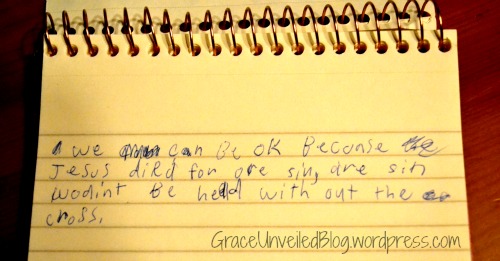 we can Be OK Becouse
Jesus dird for ore sin, ore sin
wodint Be held with out the
cross.
GraceUnveiledBlog.wordpress.com